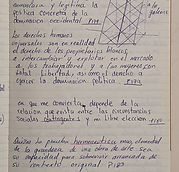 y legitima la
política concreta de la
dominación occidental P174
Los derechos humanos
universales son en realidad
el derecho de los propietarios blancos
a intercambiar y explotar en el mercado
a los trabajadores y a las mujeres con
total libertad, así como el derecho a
ejercer la dominación política. P192
en que me concretizo depende de la
relación entre las circunstancias
sociales contingentes y mi libre elección P185
la prueba hermenéutica más elemental
de la grandeza de una obra de arte sea
su capacidad para sobrevivir arrancada de
su contexto original P192